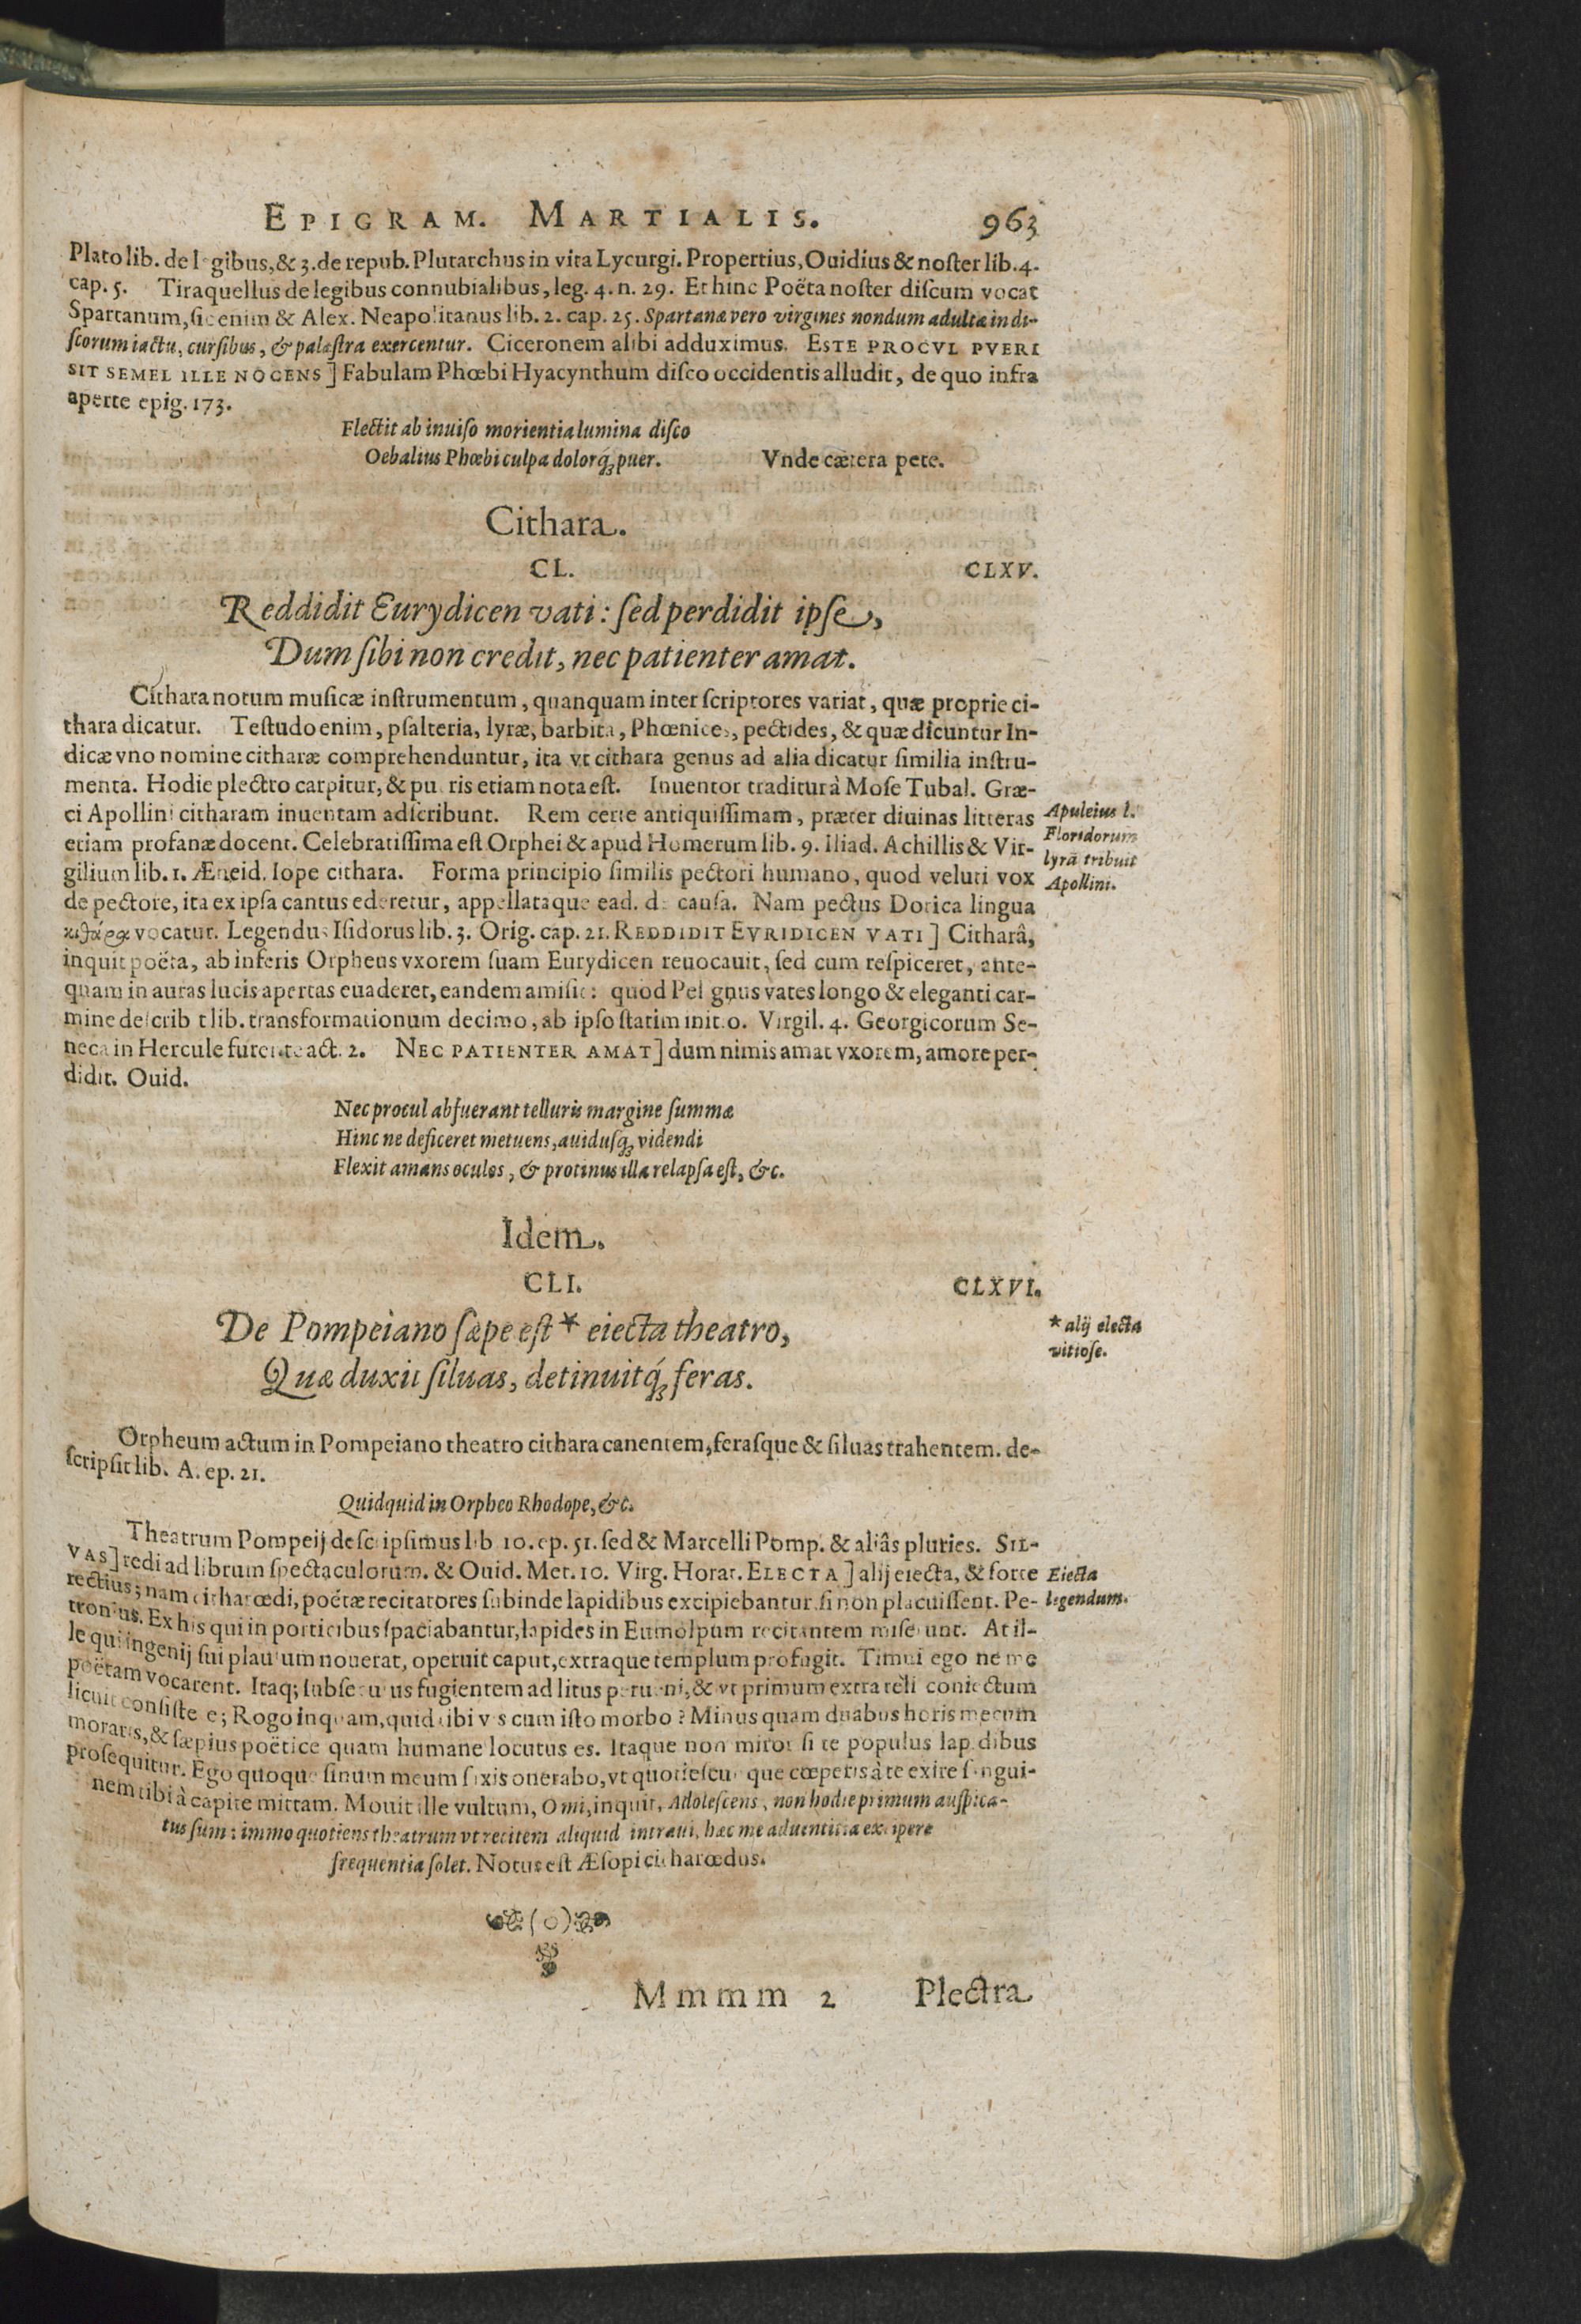 EPIGRAM. MARTIALIS. 963
Plato lib. de l gibus, & 3. de repub. Plutarchus in vita Lycurgi. Propertius, Ouidius & noſter lib. 4.
cap. 5. Tiraquellus de legibus connubialibus, leg. 4. n. 29. Et hinc Poëta noſter diſcum vocat
Spartanum, ſic enim & Alex. Neapolitanus lib. 2. cap. 25. Spartanæ vero virgines nondum adultæ in di-
ſcorum iactu, curſibus, & palæſtra exercentur. Ciceronem alibi adduximus. ESTE PROCVL PVERI
SIT SEMEL ILLE NOCENS] Fabulam Phœbi Hyacynthum diſco occidentis alludit, de quo infra
aperte epig. 173.
Flectit ab inuiſo morientia lumina diſco
Oebalius Phœbi culpa dolorq́; puer. Vnde cætera pete.
Cithara.
CL. CLXV.
Reddidit Eurydicen vati: ſed perdidit ipſe,
Dum ſibi non credit, nec patienter amat.
Cithara notum muſicæ inſtrumentum, quanquam inter ſcriptores variat, quæ proprie ci-
thara dicatur. Teſtudo enim, pſalteria, lyræ, barbita, Phœnices, pectides, & quæ dicuntur In-
dicæ vno nomine citharæ comprehenduntur, ita vt cithara genus ad alia dicatur ſimilia inſtru-
menta. Hodie plectro carpitur, & pu ris etiam nota eſt. Inuentor traditur à Moſe Tubal. Græ-
ci Apollini citharam inuentam adſcribunt. Rem certe antiquiſſimam, præter diuinas litteras
Apuleius l.
Floridorum
lyrã tribuit
Apollini.
etiam profanæ docent. Celebratiſſima eſt Orphei & apud Homerum lib. 9. Iliad. Achillis & Vir-
gilium lib. 1. Æneid. Iope cithara. Forma principio ſimilis pectori humano, quod veluti vox
de pectore, ita ex ipſa cantus ederetur, appellataque ead. de cauſa. Nam pectus Dorica lingua
κιθάρα vocatur. Legendus Iſidorus lib. 3. Orig. cap. 21. REDDIDIT EVRIDICEN VATI] Citharâ,
inquit poëta, ab inferis Orpheus vxorem ſuam Eurydicen reuocauit, ſed cum reſpiceret, ante-
quam in auras lucis apertas euaderet, eandem amiſit: quod Pel gnus vates longo & eleganti car-
mine deſcrib t lib. transformationum decimo, ab ipſo ſtatim initio. Virgil. 4. Georgicorum Se-
neca in Hercule furente act. 2. NEC PATIENTER AMAT] dum nimis amat vxorem, amore per-
didit. Ouid.
Nec procul abfuerant telluris margine ſummæ
Hinc ne deficeret metuens, auiduſq́; videndi
Flexit amans oculos, & protinus illa relapſa eſt, &c.
Idem.
CLI. CLXVI.
De Pompeiano ſæpe eſt * eiecta theatro,
* alij electa
vitioſe.
Quæ duxit ſiluas, detinuitq́; feras.
Orpheum actum in Pompeiano theatro cithara canentem, feraſque & ſiluas trahentem. de-
ſcripſit lib. A. ep. 21.
Quidquid in Orpheo Rhodope, &c.
Theatrum Pompeij deſcripſimus lib 10. ep. 51. ſed & Marcelli Pomp. & aliâs pluries. SIL-
VAS] redi ad librum ſpectaculorum. & Ouid. Met. 10. Virg. Horat. ELECTA] alij eiecta, & forte
Eiecta
legendum.
rectius; nam citharœdi, poëtæ recitatores ſubinde lapidibus excipiebantur, ſi non placuiſſent. Pe-
tronius. Ex his qui in porticibus ſpaciabantur, lapides in Eumolpum recitantem miſerunt. At il-
le qui ingenij ſui plauſum nouerat, operuit caput, extraque templum profugit. Timui ego ne me
poëtam vocarent. Itaq; ſubſecutus fugientem ad litus perueni, & vt primum extra teli coniectum
licuit conſiſtere; Rogo inquam, quid tibi vis cum iſto morbo? Minus quam duabus horis mecum
moraris, & ſæpius poëtice quam humane locutus es. Itaque non miror ſi te populus lapidibus
proſequitur. Ego quoque ſinum meum ſaxis onerabo, vt quotieſcunque cœperis à te exire ſangui-
nem tibi à capite mittam. Mouit ille vultum, O mi, inquit, Adoleſcens, non hodie primum auſpica-
tus ſum: immo quotiens theatrum vt recitem aliquid intraui, hæc me aduentitia excipere
frequentia ſolet. Notus eſt Æſopi citharœdus.
(o)
Mmmm 2 Plectra